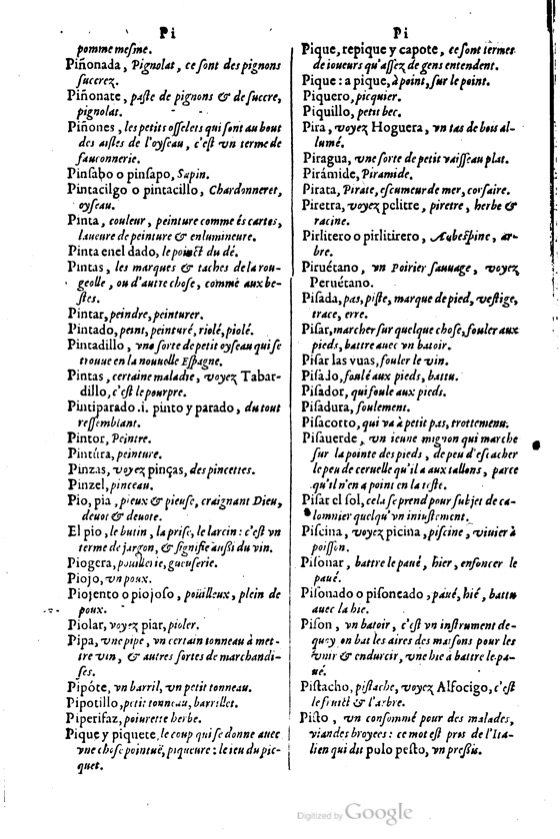 Pi
pomme mesme.
Piñonada, Pignolat, ce sont des pignons
succrez.
Piñonate, paste de pignons & de succre,
pignolat.
Piñones, les petits osselets qui sont au bout
des aisles de l'oyseau, c'est vn terme de
fauconnerie.
Pinsabo o pinsapo, Sapin.
Pintacilgo o pintacillo, Chardonneret,
oyseau.
Pinta, couleur, peinture comme és cartes,
laueure de peinture & enlumineure.
Pinta enel dado, le poinct du dé.
Pintas, les marques & taches de la rou-
geolle, ou d'autre chose, comme aux be-
stes.
Pintar, peindre, peinturer.
Pintado, peint, peinturé, riolé, piolé.
Pintadillo, vne sorte de petit oyseau qui se
trouue en la nouuelle Espagne.
Pintas, certaine maladie, voyez Tabar-
dillo, c'est le pourpre.
Pintiparado .i. pinto y parado, du tout
ressemblant.
Pintor, Peintre.
Pintúra, peinture.
Pinzas, voyez pinças, des pincettes.
Pinzel, pinceau.
Pio, pia, pieux & pieuse, craignant Dieu,
deuot & deuote.
El pio, le butin, la prise, le larcin: c'est vn
terme de jargon, & signifie aussi du vin.
Piogera, pouillerie, gueuserie.
Piojo, vn poux.
Piojento o piojoso, poüilleux, plein de
poux.
Piolar, voyez piar, pioler.
Pipa, vne pipe, vn certain tonneau à met-
tre vin, & autres sortes de marchandi-
ses.
Pipóte, vn barril, vn petit tonneau.
Pipotillo, petit tonneau, barrillet.
Piperifaz, poiurette herbe.
Pique y piquete, le coup qui se donne auec
vne chose pointuë, piqueure: le ieu du pic-
quet.
Pi
Pique, repique y capote, ce sont termes
de ioueurs qu'assez de gens entendent.
Pique: a pique, à point, sur le point.
Piquero, picquier.
Piquillo, petit bec.
Pira, voyez Hoguera, vn tas de bois al-
lumé.
Piragua, vne sorte de petit vaisseau plat.
Pirámide, Piramide.
Pirata, Pirate, escumeur de mer, corsaire.
Piretra, voyez pelitre, piretre, herbe &
racine.
Pirlitero o pirlitirero, Aubespine, ar-
bre.
Piruétano, vn Poirier sauuage, voyez
Peruétano.
Pisada, pas, piste, marque de pied, vestige,
trace, erre.
Pisar, marcher sur quelque chose, fouler aux
pieds, battre auec vn batoir.
Pisar las vuas, fouler le vin.
Pisado, foulé aux pieds, battu.
Pisador, qui foule aux pieds.
Pisadura, foulement.
Pisacorto, qui va à petit pas, trottemenu.
Pisauerde, vn ieune mignon qui marche
sur la pointe des pieds, de peu d'escacher
le peu de ceruelle qu'il a aux tallons, parce
qu'il n'en a point en la teste.
Pisar el sol, cela se prend pour subjet de ca-
lomnier quelqu'vn iniustement.
Piscina, voyez picina, piscine, viuier à
poisson.
Pisonar, battre le paué, hier, enfoncer le
paué.
Pisonado o pisoneado, paué, hié, battu
auec la hie.
Pison, vn batoir, c'est vn instrument de-
quoy on bat les aires des maisons pour les
vnir & endurcir, vne hie à battre le pa-
ué.
Pistacho, pistache, voyez Alfocigo, c'est
le fruict & l'arbre.
Pisto, vn consommé pour des malades,
viandes broyees: ce mot est pris de l'Ita-
lien qui dit pulo pesto, vn pressis.
Digitized by Google